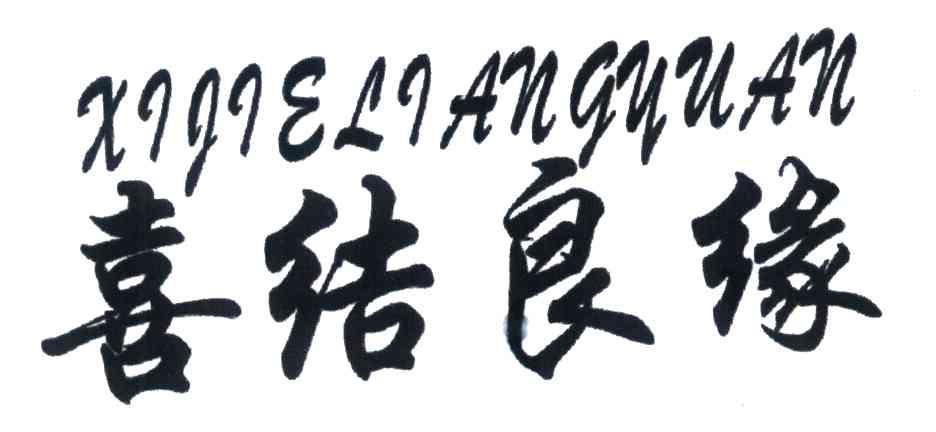 XIJIELIANGYUAN
喜结良缘